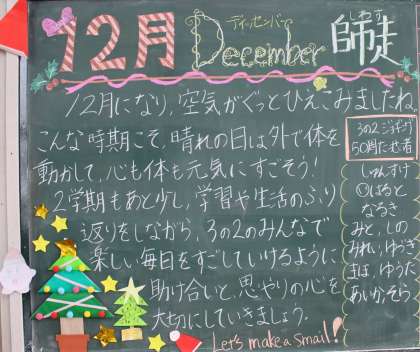 12月 December 師走
ディッセンバー
しわす
12月になり,空気がぐっとひえこみましたね。
こんな時期こそ,晴れの日は外で体を
動かして,心も体も元気にすごそう!
2学期もあと少し,学習や生活のふり
返りをしながら,3の2のみんなで
楽しい毎日をすごしていけるように
助け合いと,思いやりの心を
大切にしていきましょう。
Let's make a Smail!
3の2
50問
しゅんすけ
はると
なるき
みと,しの
みれい,ゆうき
まは,ゆうた
あいか,そら